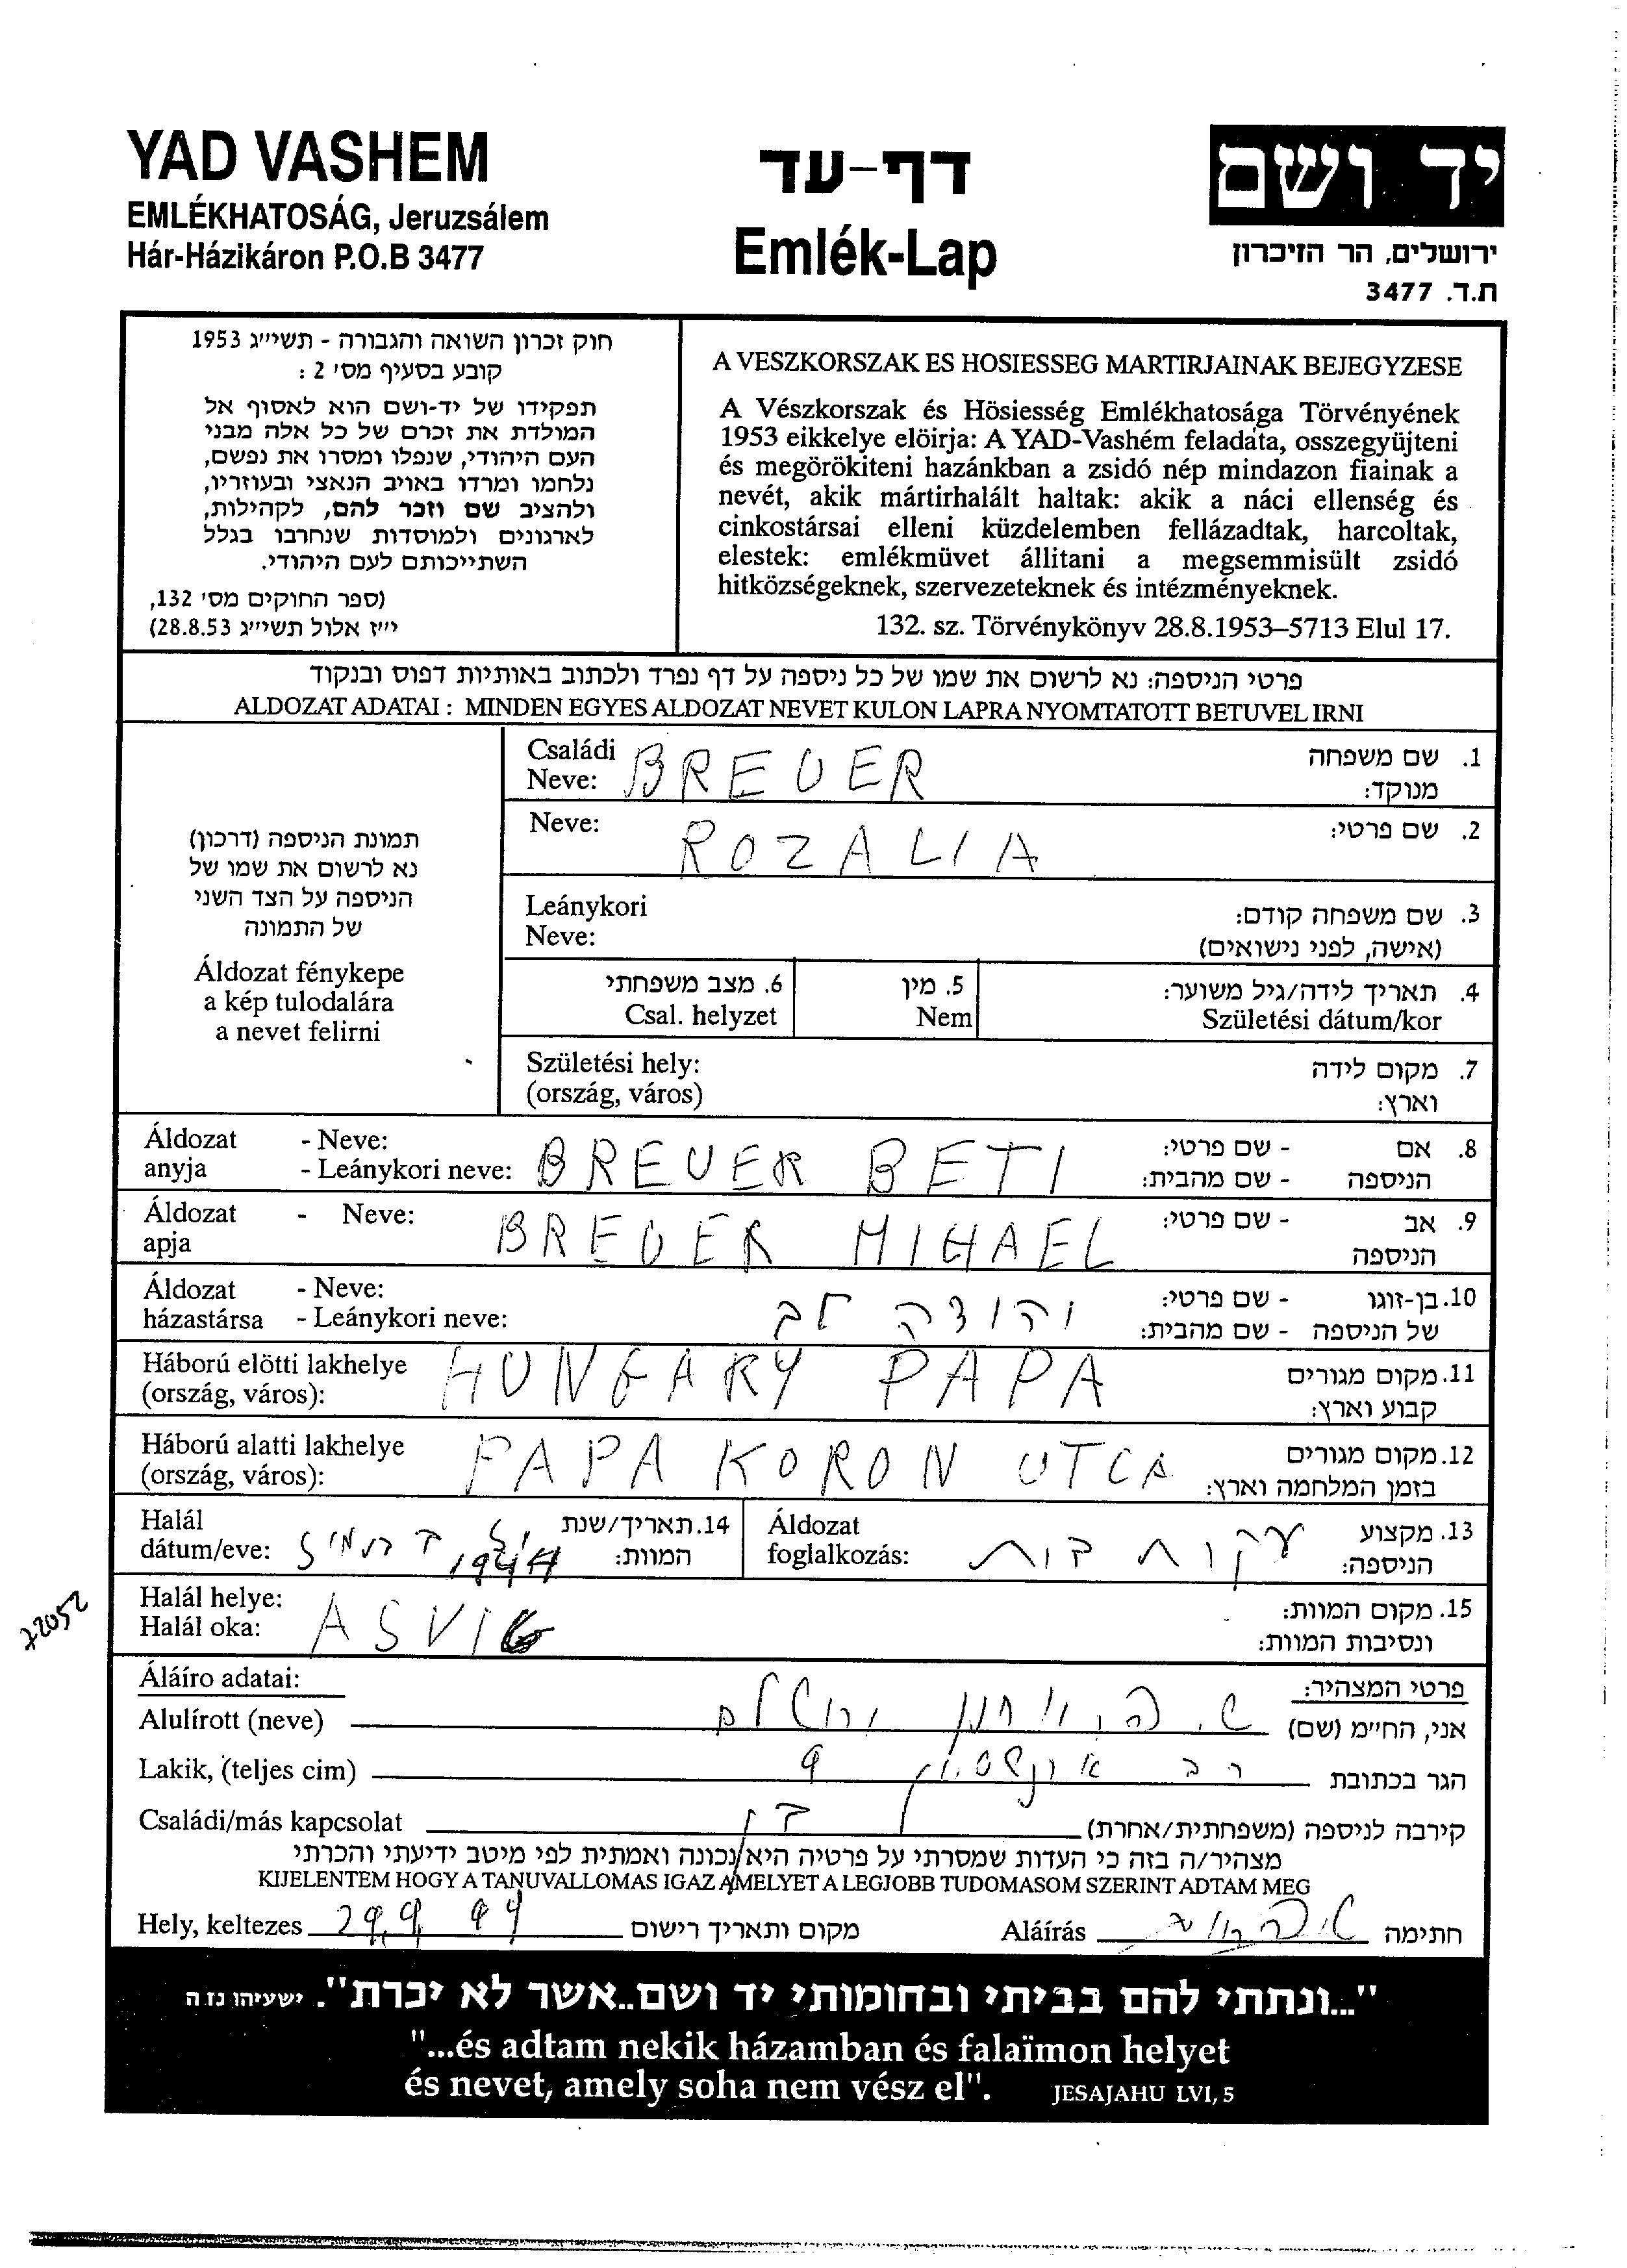 YAD VASHEM
EMLÉKHATOSÁG, Jeruzsálem
Hár-Házikáron P.O.B 3477
דף-עד
Emlék-Lap
יד ושם
ירושלים, הר הזיכרון
ת.ד. 3477
חוק זכרון השואה והגבורה - תשי״ג 1953
קובע בסעיף מס׳ 2 :
תפקידו של יד-ושם הוא לאסוף אל
המולדת את זכרם של כל אלה מבני
העם היהודי, שנפלו ומסרו את נפשם,
נלחמו ומרדו באויב הנאצי ובעוזריו,
ולהציב שם וזכר להם, לקהילות,
לארגונים ולמוסדות שנחרבו בגלל
השתייכותם לעם היהודי.
(ספר החוקים מס׳ 132,
י״ז אלול תשי״ג 28.8.53)
A VESZKORSZAK ES HOSIESSEG MARTIRJAINAK BEJEGYZESE
A Vészkorszak és Hösiesség Emlékhatosága Törvényének
1953 eikkelye elöirja: A YAD-Vashém feladáta, osszegyüjteni
és megörökiteni hazánkban a zsidó nép mindazon fiainak a
nevét, akik mártirhalált haltak: akik a náci ellenség és
cinkostársai elleni küzdelemben fellázadtak, harcoltak,
elestek: emlékmüvet állitani a megsemmisült zsidó
hitközségeknek, szervezeteknek és intézményeknek.
132. sz. Törvénykönyv 28.8.1953–5713 Elul 17.
פרטי הניספה: נא לרשום את שמו של כל ניספה על דף נפרד ולכתוב באותיות דפוס ובנקוד
ALDOZAT ADATAI : MINDEN EGYES ALDOZAT NEVET KULON LAPRA NYOMTATOTT BETUVEL IRNI
תמונת הניספה (דרכון)
נא לרשום את שמו של
הניספה על הצד השני
של התמונה
Áldozat fénykepe
a kép tulodalára
a nevet felirni
Családi Neve: BREUER 1. שם משפחה מנוקד:
Neve: ROZALIA 2. שם פרטי:
Leánykori Neve: 3. שם משפחה קודם: (אישה, לפני נישואים)
6. מצב משפחתי Csal. helyzet
5. מין Nem
4. תאריך לידה/גיל משוער: Születési dátum/kor
Születési hely: (ország, város) 7. מקום לידה וארץ:
Áldozat anyja - Neve: - Leánykori neve: BREUER BETI 8. אם הניספה - שם פרטי: - שם מהבית:
Áldozat apja - Neve: BREUER MIHAEL 9. אב הניספה - שם פרטי:
Áldozat házastársa - Neve: - Leánykori neve: יהודה לב 10. בן-זוגו של הניספה - שם פרטי: - שם מהבית:
Háború elötti lakhelye (ország, város): HUNGARY PAPA 11. מקום מגורים קבוע וארץ:
Háború alatti lakhelye (ország, város): PAPA KORON UTCA 12. מקום מגורים בזמן המלחמה וארץ:
Halál dátum/eve: 1944 14. תאריך/שנת המוות:
Áldozat foglalkozás: עקרת בית 13. מקצוע הניספה:
Halál helye: Halál oka: ASVIG 15. מקום המוות: ונסיבות המוות:
72052
Áláíro adatai: פרטי המצהיר:
Alulírott (neve) אני, החי״מ (שם)
Lakik, (teljes cim) 9 הגר בכתובת
Családi/más kapcsolat קירבה לניספה (משפחתית/אחרת)
מצהיר/ה בזה כי העדות שמסרתי על פרטיה היא נכונה ואמתית לפי מיטב ידיעתי והכרתי
KIJELENTEM HOGY A TANUVALLOMAS IGAZ AMELYET A LEGJOBB TUDOMASOM SZERINT ADTAM MEG
Hely, keltezes 29.9.99 מקום ותאריך רישום Aláírás חתימה
"...ונתתי להם בביתי ובחומותי יד ושם..אשר לא יכרת". ישעיהו נז ה
"...és adtam nekik házamban és falaïmon helyet
és nevet, amely soha nem vész el". JESAJAHU LVI, 5